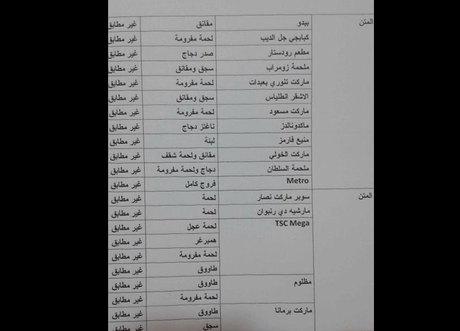 المتن بيبدو مقانق غير مطابق
كبابجي جل الديب لحمة مفرومة غير مطابق
مطعم رودستار صدر دجاج غير مطابق
ملحمة زومراب سجق ومقانق غير مطابق
ماركت تلوري بعبدات لحمة مفرومة غير مطابق
الاشقر انطلياس سجق ومقانق غير مطابق
ماركت مسعود لحمة مفرومة غير مطابق
ماكدونالدز ناغتز دجاج غير مطابق
منيع فارمز لبنة غير مطابق
ماركت الخولي مقانق ولحمة شقف غير مطابق
ملحمة السلطان دجاج ولحمة مفرومة غير مطابق
Metro فروج كامل غير مطابق
المتن سوبر ماركت نصار لحمة غير مطابق
مارشيه دي رنبوان لحمة غير مطابق
TSC Mega لحمة عجل غير مطابق
همبرغر غير مطابق
لحمة مفرومة غير مطابق
طاووق غير مطابق
مظلوم طاووق غير مطابق
لحمة مفرومة غير مطابق
ماركت برمانا طاووق غير مطابق
سجق غير مطابق